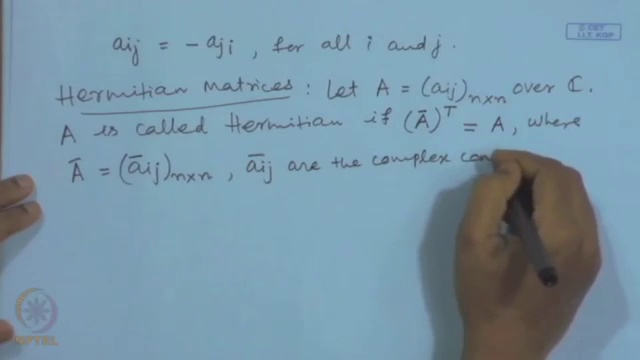 © CET
I.I.T. KGP
aij = - aji, for all i and j.
Hermitian Matrices : Let A = (aij)n×n over ℂ.
A is called Hermitian if (Ā)ᵀ = A, where
Ā = (āij)n×n, āij are the complex con
NPTEL